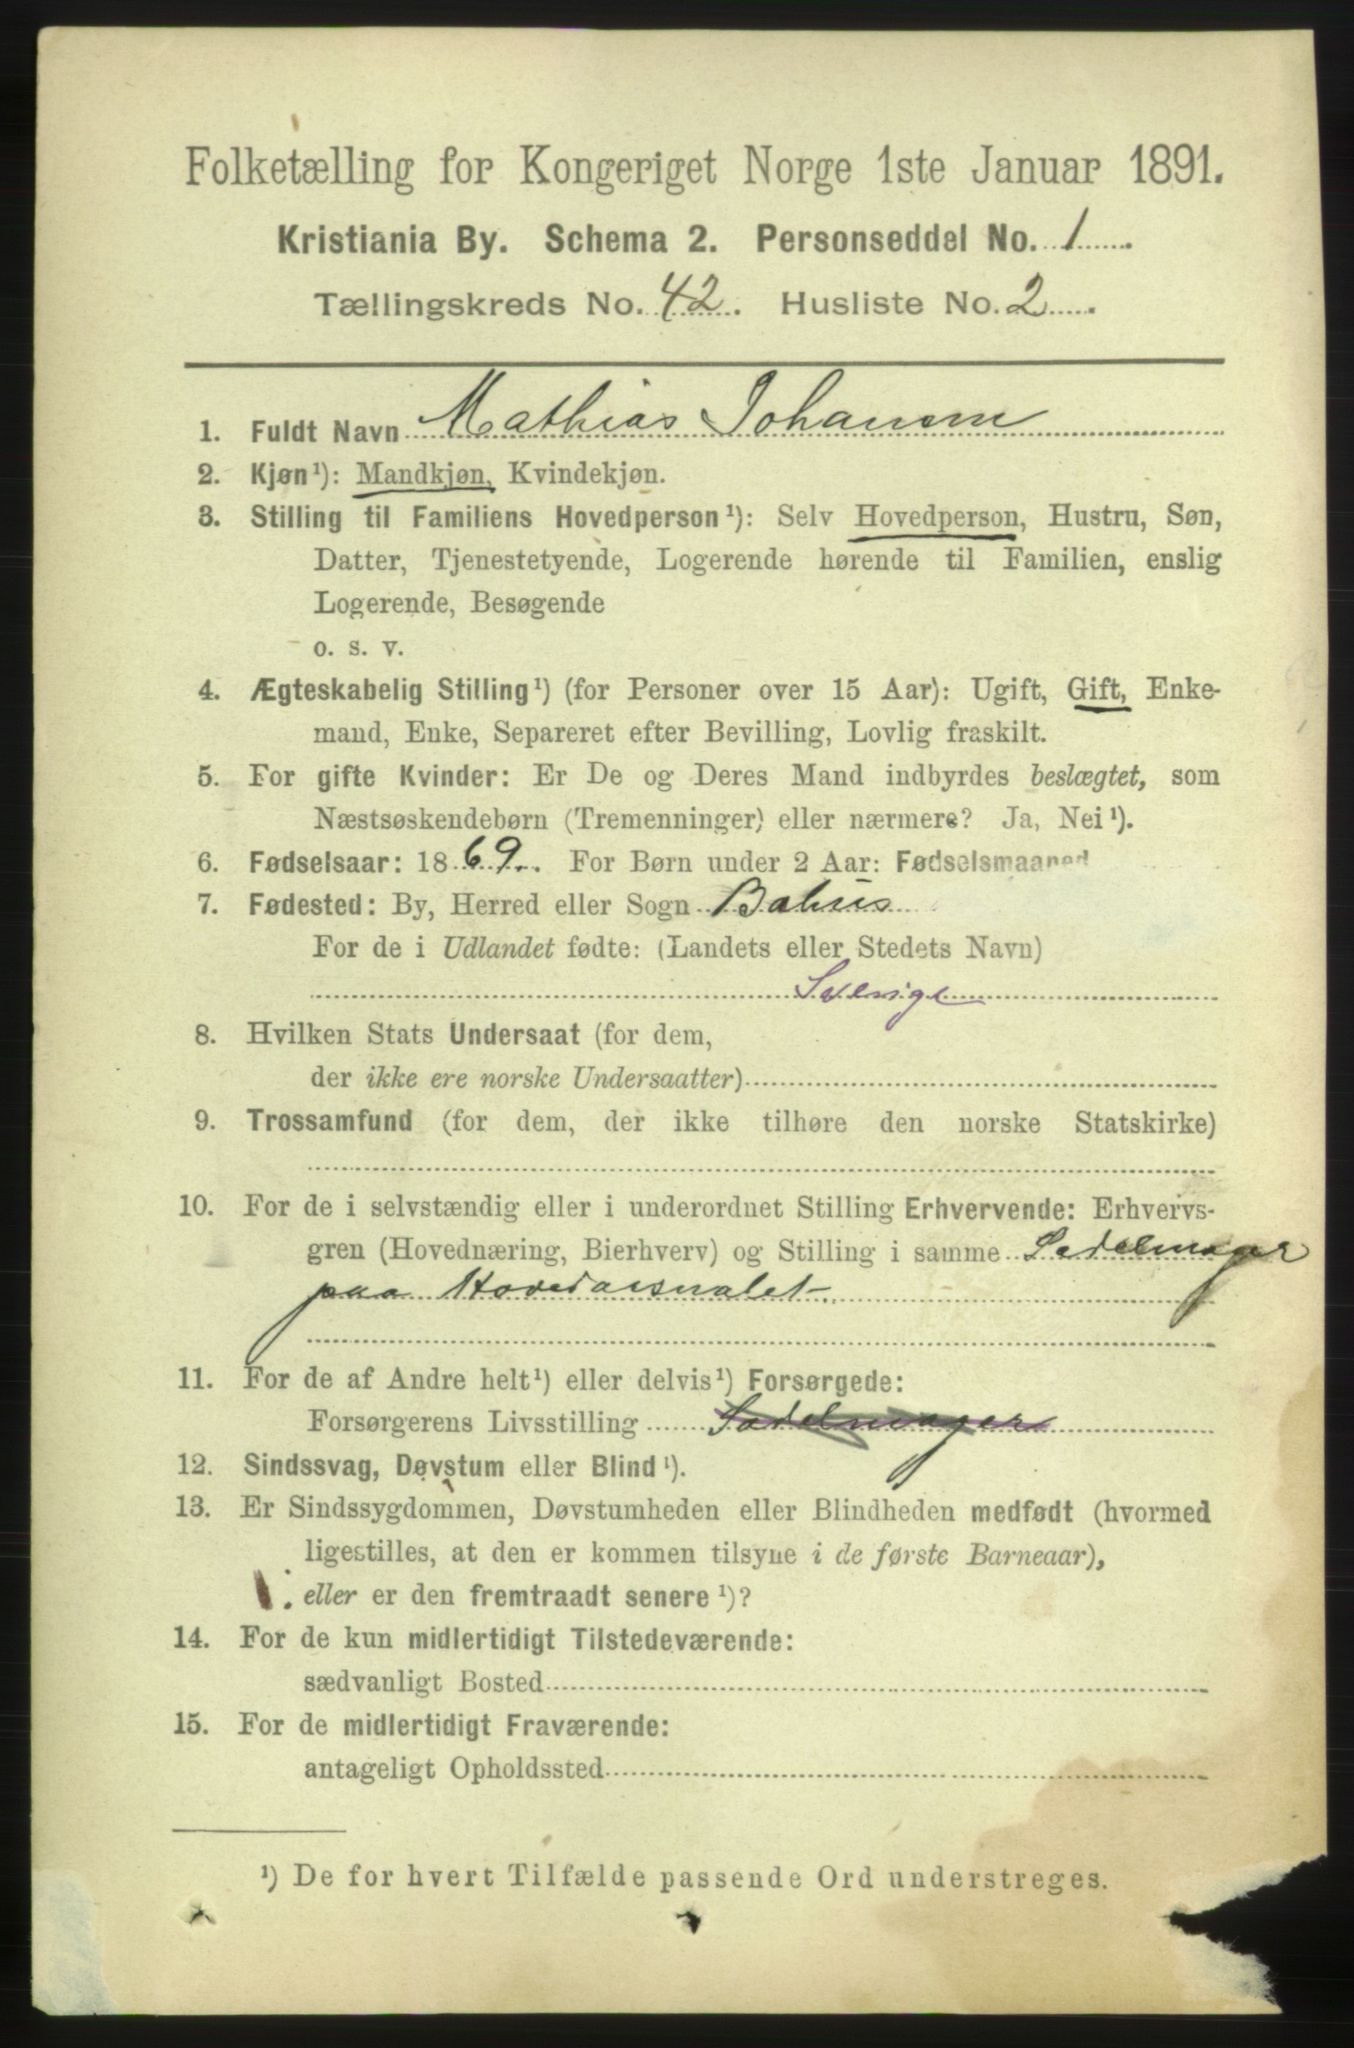 Folketælling for Kongeriget Norge 1ste Januar 1891.
Kristiania By. Schema 2. Personseddel No. 1
Tællingskreds No. 42. Husliste No. 2
1. Fuldt Navn Mathias Johansen
2. Kjøn¹): Mandkjøn, Kvindekjøn.
3. Stilling til Familiens Hovedperson¹): Selv Hovedperson, Hustru, Søn,
Datter, Tjenestetyende, Logerende hørende til Familien, enslig
Logerende, Besøgende
o. s. v.
4. Ægteskabelig Stilling¹) (for Personer over 15 Aar): Ugift, Gift, Enke-
mand, Enke, Separeret efter Bevilling, Lovlig fraskilt.
5. For gifte Kvinder: Er De og Deres Mand indbyrdes beslægtet, som
Næstsøskendebørn (Tremenninger) eller nærmere? Ja, Nei¹).
6. Fødselsaar: 1869. For Børn under 2 Aar: Fødselsmaaned
7. Fødested: By, Herred eller Sogn Bahus
For de i Udlandet fødte: (Landets eller Stedets Navn)
Sverige
8. Hvilken Stats Undersaat (for dem,
der ikke ere norske Undersaatter)
9. Trossamfund (for dem, der ikke tilhøre den norske Statskirke)
10. For de i selvstændig eller i underordnet Stilling Erhvervende: Erhvervs-
gren (Hovednæring, Bierhverv) og Stilling i samme Sadelmager
paa Hovedarsnalet
11. For de af Andre helt¹) eller delvis¹) Forsørgede:
Forsørgerens Livsstilling Sadelmager
12. Sindssvag, Døvstum eller Blind¹).
13. Er Sindssygdommen, Døvstumheden eller Blindheden medfødt (hvormed
ligestilles, at den er kommen tilsyne i de første Barneaar),
eller er den fremtraadt senere¹)?
14. For de kun midlertidigt Tilstedeværende:
sædvanligt Bosted
15. For de midlertidigt Fraværende:
antageligt Opholdssted
¹) De for hvert Tilfælde passende Ord understreges.